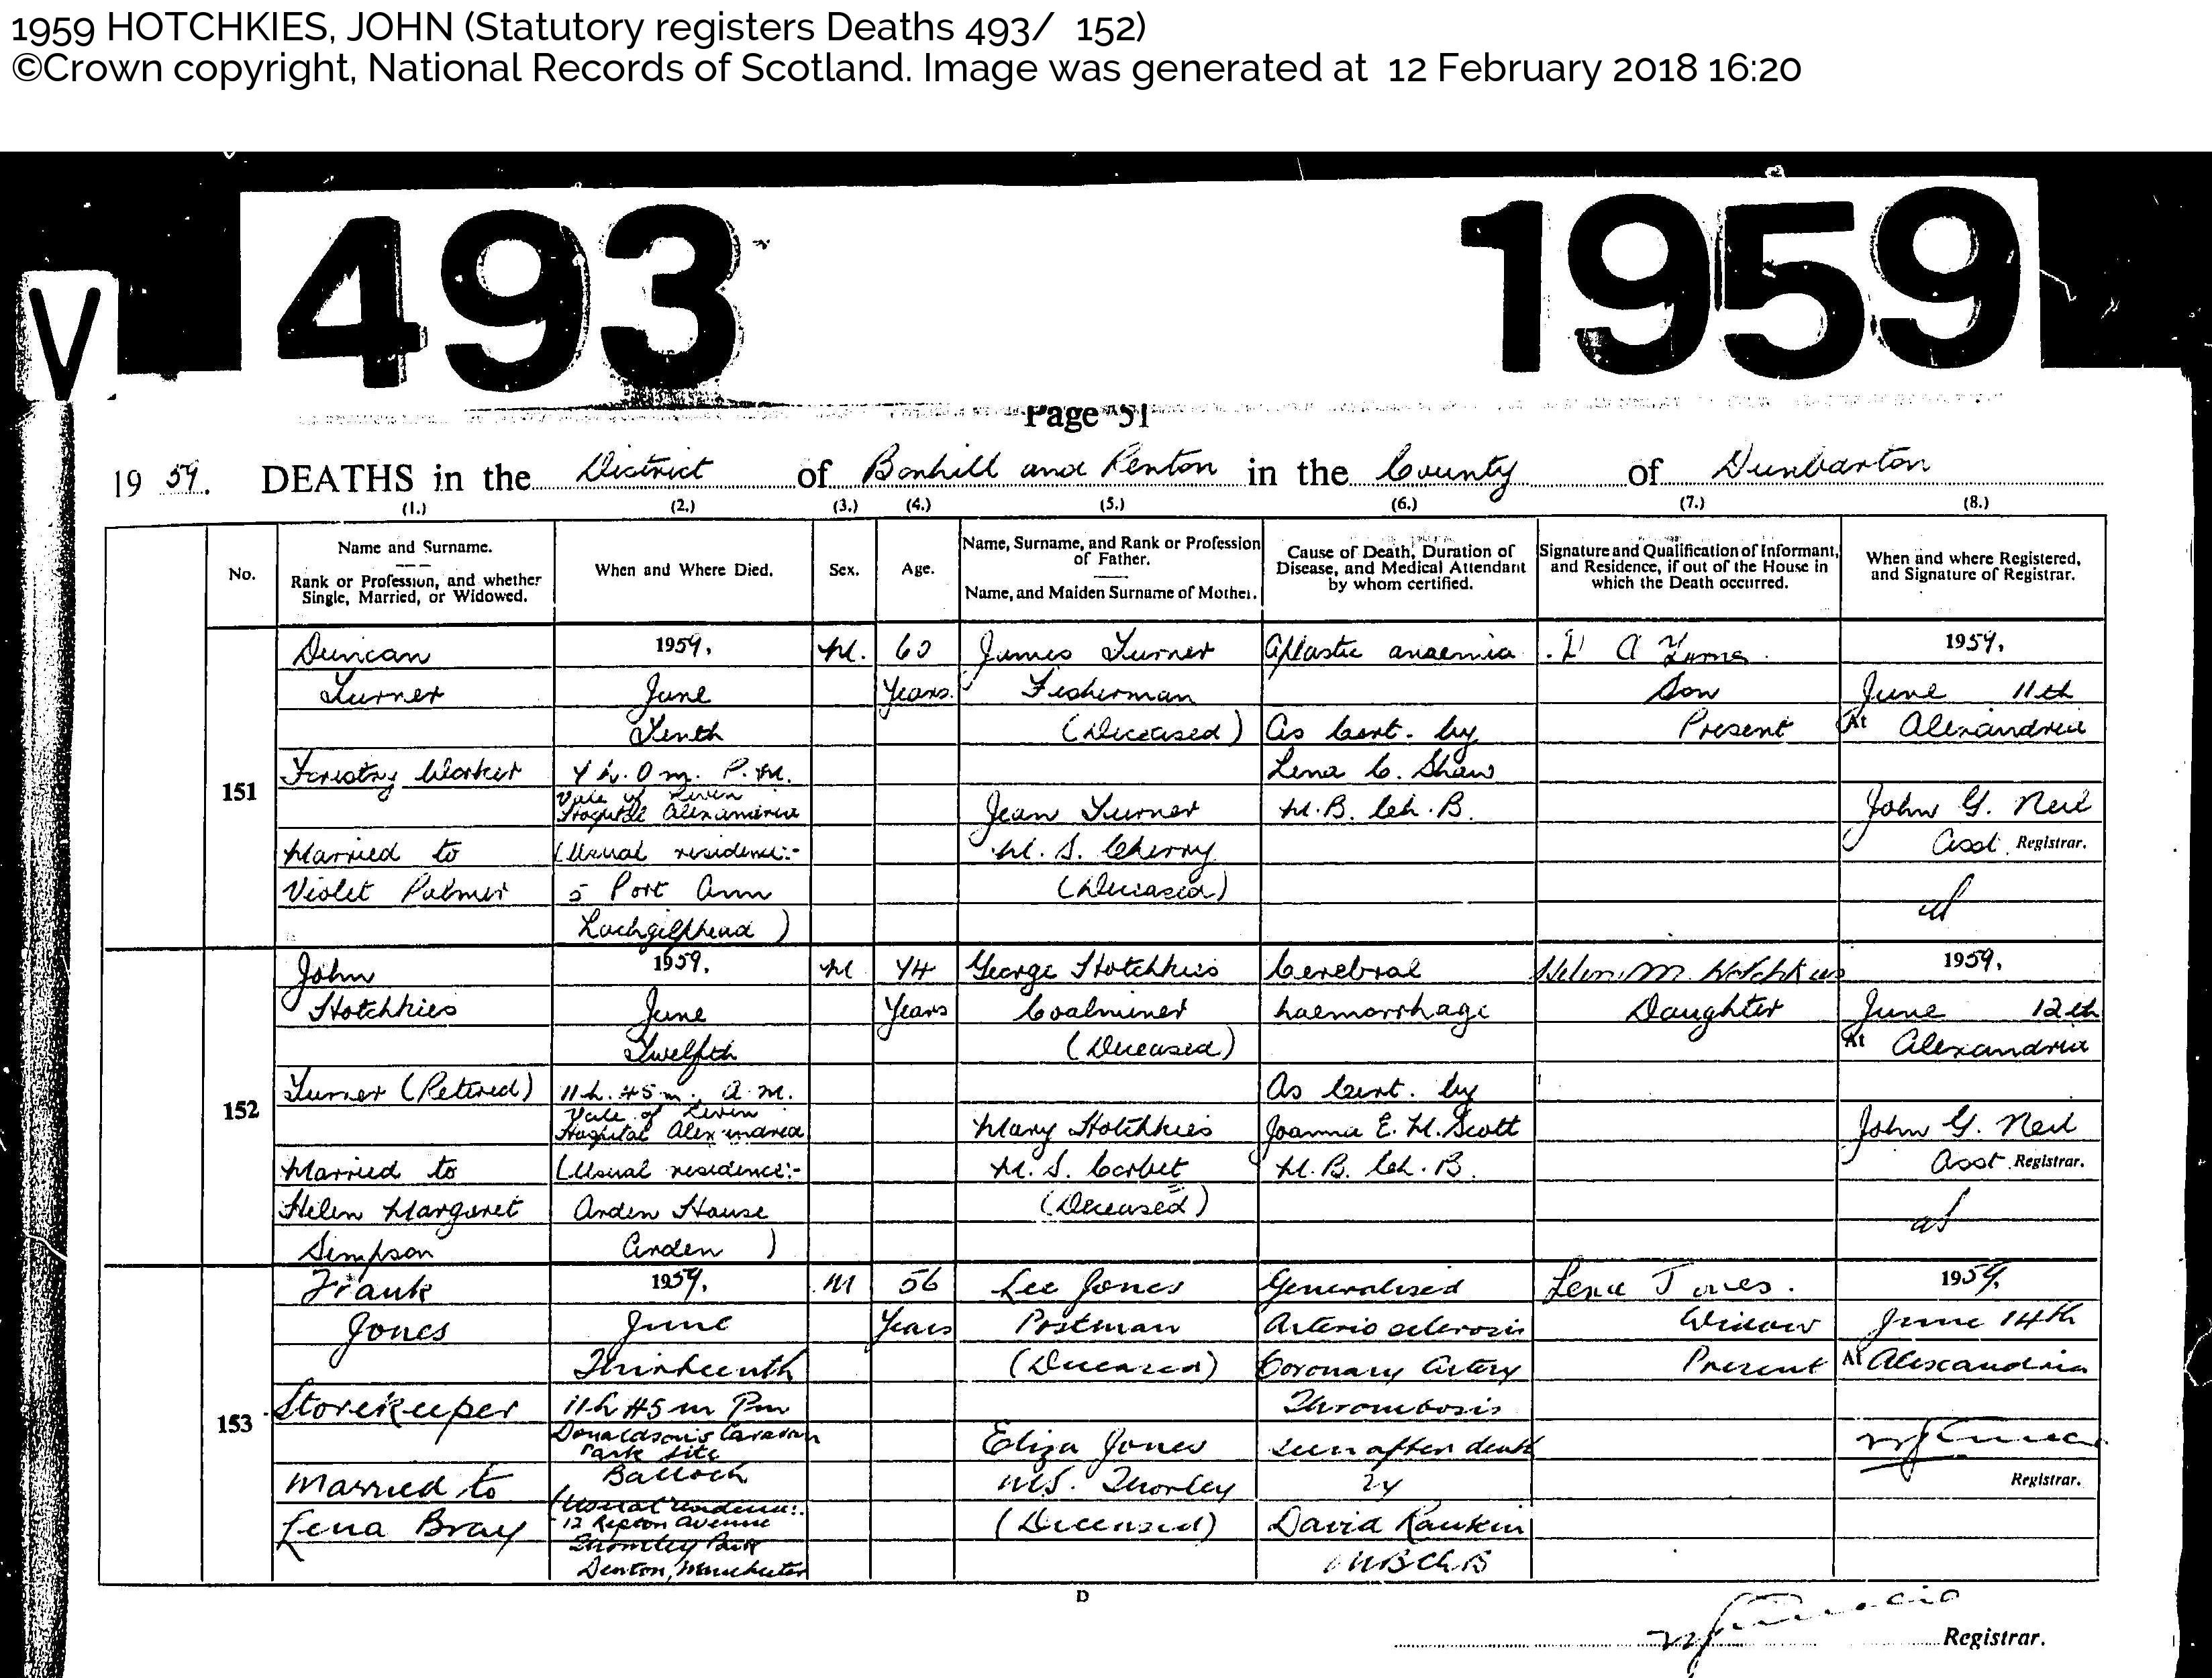 1959 HOTCHKIES, JOHN (Statutory registers Deaths 493/ 152)
©Crown copyright, National Records of Scotland. Image was generated at 12 February 2018 16:20
V
493
1959
Page 51
19 59. DEATHS in the District of Bonhill and Renton in the County of Dunbarton
(1.) (2.) (3.) (4.) (5.) (6.) (7.) (8.)
No.
Name and Surname.
Rank or Profession, and whether
Single, Married, or Widowed.
When and Where Died.
Sex.
Age.
Name, Surname, and Rank or Profession
of Father.
Name, and Maiden Surname of Mother.
Cause of Death, Duration of
Disease, and Medical Attendant
by whom certified.
Signature and Qualification of Informant,
and Residence, if out of the House in
which the Death occurred.
When and where Registered,
and Signature of Registrar.
151
Duncan
Turner
Forestry Worker
Married to
Violet Palmer
1959.
June
Tenth
4 h. 0 m. P.M.
Vale of Leven
Hospital Alexandria
(Usual residence:-
5 Port Ann
Lochgilphead )
M.
60
Years.
James Turner
Fisherman
(Deceased)
Jean Turner
M. S. Cherry
(Deceased)
Aplastic anaemia
As Cert. by
Lena C. Shaw
M.B. Ch.B.
D A Turner
Son
Present
1959.
June 11th
At Alexandria
John G. Neil
Asst. Registrar.
152
John
Hotchkies
Turner (Retired)
Married to
Helen Margaret
Simpson
1959.
June
Twelfth
11 h. 45 m. A.M.
Vale of Leven
Hospital Alexandria
(Usual residence:-
Arden House
Arden )
M
74
Years
George Hotchkies
Coalminer
(Deceased)
Mary Hotchkies
M. S. Corbet
(Deceased)
Cerebral
haemorrhage
As Cert. by
Joanna E. M. Scott
M.B. Ch.B.
Helen M. Hotchkies
Daughter
1959.
June 12th
At Alexandria
John G. Neil
Asst. Registrar.
153
Frank
Jones
Storekeeper
Married to
Lena Bray
1959.
June
Thirteenth
11h 45m Pm
Donaldson's Caravan
Park Site
Balloch
(Usual residence:-
12 Repton Avenue
Denton, Manchester
M
56
Years
Lee Jones
Postman
(Deceased)
Eliza Jones
M.S. Thorley
(Deceased)
Generalised
Arterio sclerosis
Coronary Artery
Thrombosis
seen after death
by
David Rankin
MBChB
Lena Jones.
Widow
Present
1959.
June 14th
At Alexandria
Registrar.
D
Registrar.